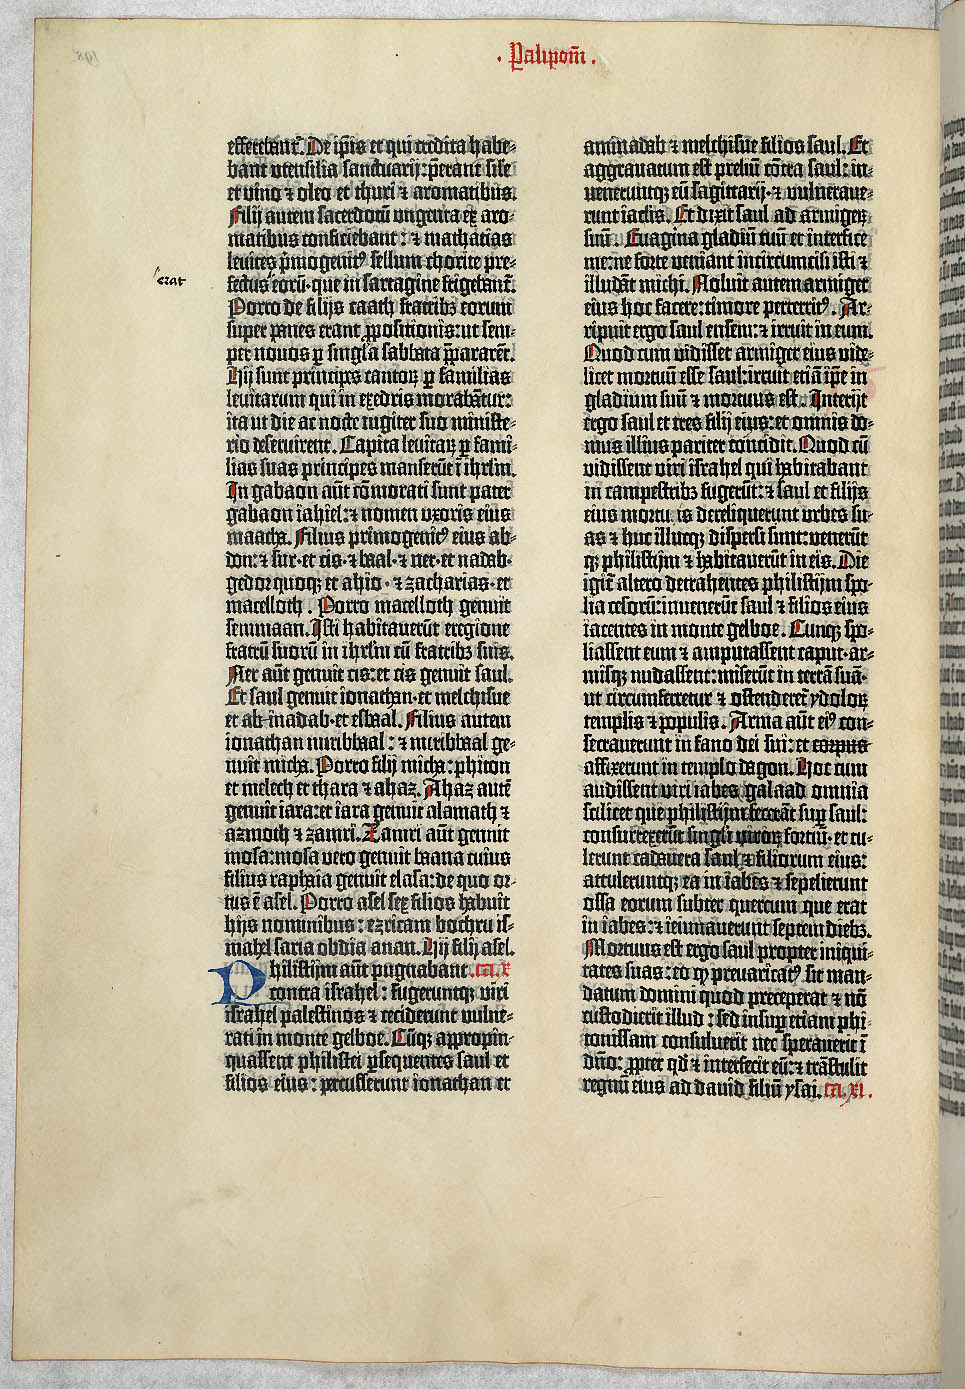 · Palipom̄ .
efferebant̄. De ip̄is et qui credita habe-
bant utensilia sanctuarij: p̄erant sil̄e
et vino ⁊ oleo et thuri ⁊ aromatibus.
Filij autem sacerdotū ungenta ex aro-
matibus conficiebant: ⁊ mathatias
levites p̄mogenitꝰ sellum chorite pre-
erat
fectus eorū· que in sartagine frigebant̄.
Porro de filijs caath fratribꝫ eorum
super panes erant ꝓpositionis: ut sem-
per novos ꝑ singl'a sabbata ꝓpararēt.
Hij sunt principes cantoꝝ ꝑ familias
levitarum qui in exedris morabātur:
ita ut die ac nocte iugiter suo ministe-
rio deservirent. Capita levitaꝝ ꝑ fami-
lias suas principes manserūt ī ihrl̄m.
In gabaon aūt cōmorati sunt pater
gabaon iahiel: ⁊ nomen uxoris eius
maacha. Filius primogenitꝰ eius ab-
don: ⁊ sur· et cis· ⁊ baal· ⁊ ner· et nadab·
gedor quoqꝫ et ahio· ⁊ zacharias· et
macelloth. Porro macelloth genuit
semmaan. Isti habitaverūt eregione
fratrū suorū in ihrl̄m cū fratribꝫ suis.
Ner aūt genuit cis: et cis genuit saul.
Et saul genuit ionathan· et melchisue
et abinadab· et esbaal. Filius autem
ionathan miribbaal: ⁊ miribbaal ge-
nuit micha. Porro filij micha: phiton
et melech et thara ⁊ ahaz. Ahaz autē
genuit iara: et iara genuit alamath ⁊
azmoth ⁊ zamri. Zamri aūt genuit
mosa: mosa vero genuit baana cuius
filius raphaia genuit elasa: de quo or-
tus ē asel. Porro asel sex filios habuit
hijs nominibus: ezricam bochru is-
mahel saria obdia anan. Hij filij asel.
Philistijm aūt pugnabant .ca.x
contra israhel: fugeruntqꝫ viri
israhel palestinos ⁊ ceciderunt vulne-
rati in monte gelboe. Cūqꝫ appropin-
quassent philistei ꝑsequentes saul et
filios eius: percusserunt ionathan et
aminadab ⁊ melchisue filios saul. Et
aggravatum est preliū cōtra saul: in-
veneruntqꝫ eū sagittarij· ⁊ vulnerave-
runt iaculis. Et dixit saul ad armigeꝝ
suū. Evagina gladiū tuū et interfice
me: ne forte veniant incircumcisi isti ⁊
illudāt michi. Noluit autem armiger
eius hoc facere: timore perterritꝰ. Ar-
ripuit ergo saul ensem: ⁊ irruit in eum.
Quod cum vidisset armiger eius vide-
licet mortuū esse saul: irruit etiā ip̄e in
gladium suū ⁊ mortuus est. Interijt
ergo saul et tres filij eius: et omnis do-
mus illius pariter concidit. Quod cū
vidissent viri israhel qui habitabant
in campestribꝫ fugerūt: ⁊ saul et filijs
eius mortuis dereliquerunt urbes su-
as ⁊ huc illucqꝫ dispersi sunt: venerūt
qꝫ philistijm ⁊ habitaverūt in eis. Die
igit̄ altero detrahentes philistijm spo-
lia cesorū: invenerūt saul ⁊ filios eius
iacentes in monte gelboe. Cunqꝫ spo-
liassent eum ⁊ amputassent caput· ar-
misqꝫ nudassent: miserūt in terrā suā·
ut circumferretur ⁊ ostenderet̄ ydoloꝝ
templis ⁊ populis. Arma aūt eiꝰ con-
secraverunt in fano dei sui: et corpus
affixerunt in templo dagon. Hoc cum
audissent viri iabes galaad omnia
scilicet que philistijm fecerāt suꝑ saul:
consurrexerūt singl'i viroꝝ fortiū· et tu-
lerunt cadavera saul ⁊ filiorum eius:
attuleruntqꝫ ea in iabes ⁊ sepelierunt
ossa eorum subter quercum que erat
in iabes: ⁊ ieiunaverunt septem diebꝫ.
Mortuus est ergo saul propter iniqui-
tates suas: eo ꝙ prevaricatꝰ sit man-
datum domini quod preceperat ⁊ nō
custodierit illud: sed insuꝑ etiam phi-
tonissam consuluerit nec speraverit ī
dn̄o: ꝓpter qd̄ ⁊ interfecit eū: ⁊ trāstulit
regnū eius ad david filiū ysai. ca.xi.